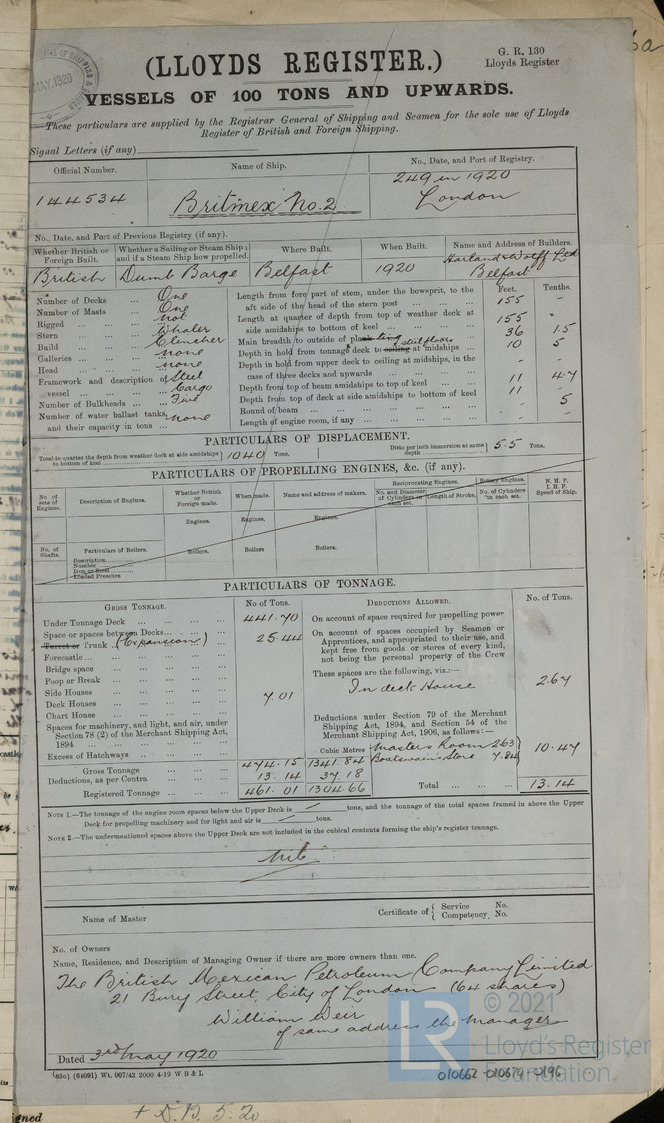 (LLOYDS REGISTER.)
G. R. 130
Lloyds Register
VESSELS OF 100 TONS AND UPWARDS.
These particulars are supplied by the Registrar General of Shipping and Seamen for the sole use of Lloyds
Register of British and Foreign Shipping.
Signal Letters (if any)
Official Number. Name of Ship. No., Date, and Port of Registry.
144534 Britmex No. 2 249 in 1920
London
No., Date, and Port of Previous Registry (if any).
Whether British or Foreign Built. Whether a Sailing or Steam Ship; and if a Steam Ship how propelled. Where Built. When Built. Name and Address of Builders.
British Dumb Barge Belfast 1920 Harland & Wolff Ltd Belfast
Number of Decks ... One
Number of Masts ... One
Rigged ... not
Stern ... Whaler
Build ... Clencher
Galleries ... none
Head ... none
Framework and description of vessel ... Steel Cargo
Number of Bulkheads ... Five
Number of water ballast tanks, and their capacity in tons ... none
Feet. Tenths.
Length from fore part of stem, under the bowsprit, to the aft side of the head of the stern post ... 155 -
Length at quarter of depth from top of weather deck at side amidships to bottom of keel ... 155 "
Main breadth to outside of plating 36 1.5
Depth in hold from tonnage deck to ceiling at midships ... 10 5
Depth in hold from upper deck to ceiling at midships, in the case of three decks and upwards ... - -
Depth from top of beam amidships to top of keel ... 11 47
Depth from top of deck at side amidships to bottom of keel 11 -
Round of beam ... - 5
Length of engine room, if any ... - -
PARTICULARS OF DISPLACEMENT.
Total to quarter the depth from weather deck at side amidships to bottom of keel 1040 Tons. Ditto per inch immersion at same depth 5.5 Tons.
PARTICULARS OF PROPELLING ENGINES, &c. (if any).
No. of sets of Engines. Description of Engines. Whether British or Foreign made. When made. Name and address of makers. Reciprocating Engines. Rotary Engines. N. H. P. I. H. P. Speed of Ship.
No. and Diameter of Cylinders in each set. Length of Stroke. No. of Cylinders in each set.
Engines. Engines. Engines.
No. of Shafts. Particulars of Boilers. Boilers. Boilers Boilers.
Description
Number
Iron or Steel
Loaded Pressure
PARTICULARS OF TONNAGE.
GROSS TONNAGE. No of Tons. DEDUCTIONS ALLOWED. No. of Tons.
Under Tonnage Deck ... 441.70
Space or spaces between Decks...
Turret or Trunk (Expansion) 25.44
Forecastle...
Bridge space
Poop or Break
Side Houses
Deck Houses 7.01
Chart House
Spaces for machinery, and light, and air, under Section 78 (2) of the Merchant Shipping Act, 1894
Excess of Hatchways
Gross Tonnage 474.15 1341.84
Deductions, as per Contra 13.14 37.18
Registered Tonnage 461.01 1304.66
On account of space required for propelling power
On account of spaces occupied by Seamen or Apprentices, and appropriated to their use, and kept free from goods or stores of every kind, not being the personal property of the Crew
These spaces are the following, viz.:—
In deck House 2.67
Deductions under Section 79 of the Merchant Shipping Act, 1894, and Section 54 of the Merchant Shipping Act, 1906, as follows:—
Cubic Metres
Masters Room 2.63
Boatswains Store 7.84
10.47
Total ... 13.14
NOTE 1.—The tonnage of the engine room spaces below the Upper Deck is tons, and the tonnage of the total spaces framed in above the Upper
Deck for propelling machinery and for light and air is tons.
NOTE 2.—The undermentioned spaces above the Upper Deck are not included in the cubical contents forming the ship's register tonnage.
nil
Name of Master Certificate of { Service No. Competency. No.
No. of Owners
Name, Residence, and Description of Managing Owner if there are more owners than one.
The British Mexican Petroleum Company Limited
21 Bury Street, City of London (64 shares)
William Weir
of same address the manager
Dated 3rd May 1920
(83o) (64091) Wt. 907/43 2000 4-19 W B & L
© 2021
Lloyd's Register
Foundation.
010662-010674-0196
+ D.B. 5.20
igned